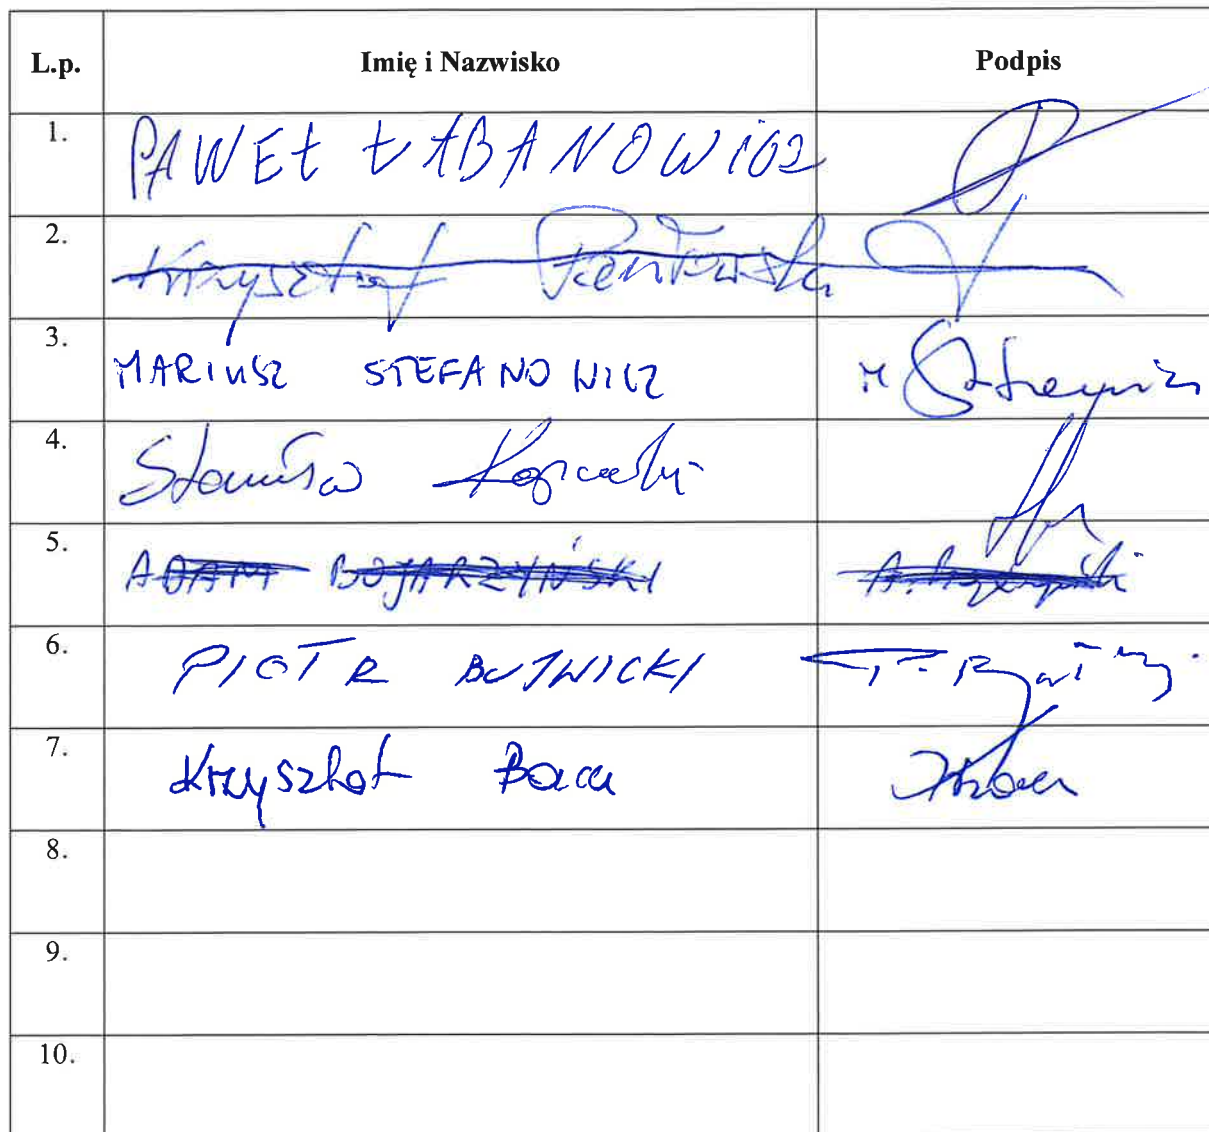 L.p. Imię i Nazwisko Podpis
1. PAWEŁ ŁABANOWICZ
2. Krzysztof
3. MARIUSZ STEFANOWICZ M
4. Stanisław
5. ADAM BOJARZYŃSKI A.
6. PIOTR BUJWICKI
7. Krzysztof Baca
8.
9.
10.